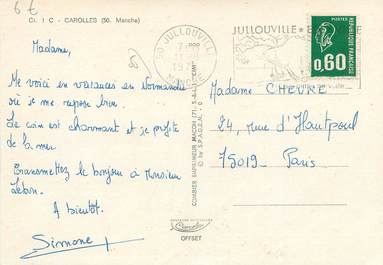 6 €
Ci. 1 C - CAROLLES (50. Manche)
Madame,
Me voici en vacances en Normandie
où je me repose bien.
Le coin est charmant et je profite
de la mer
Transmettez le bonjour à Monsieur
Lebon.
A bientôt.
Simone
50 JULLOUVILLE
MANCHE
JULLOUVILLE
POSTES
REPUBLIQUE FRANÇAISE
0,60
COMBIER IMPRIMEUR MACON (71. S.-&-L.) "CIM"
© by S.P.A.D.E.M.
Combier
OFFSET
Madame CHEVRE
24, rue d'Hautpoul
75019 Paris